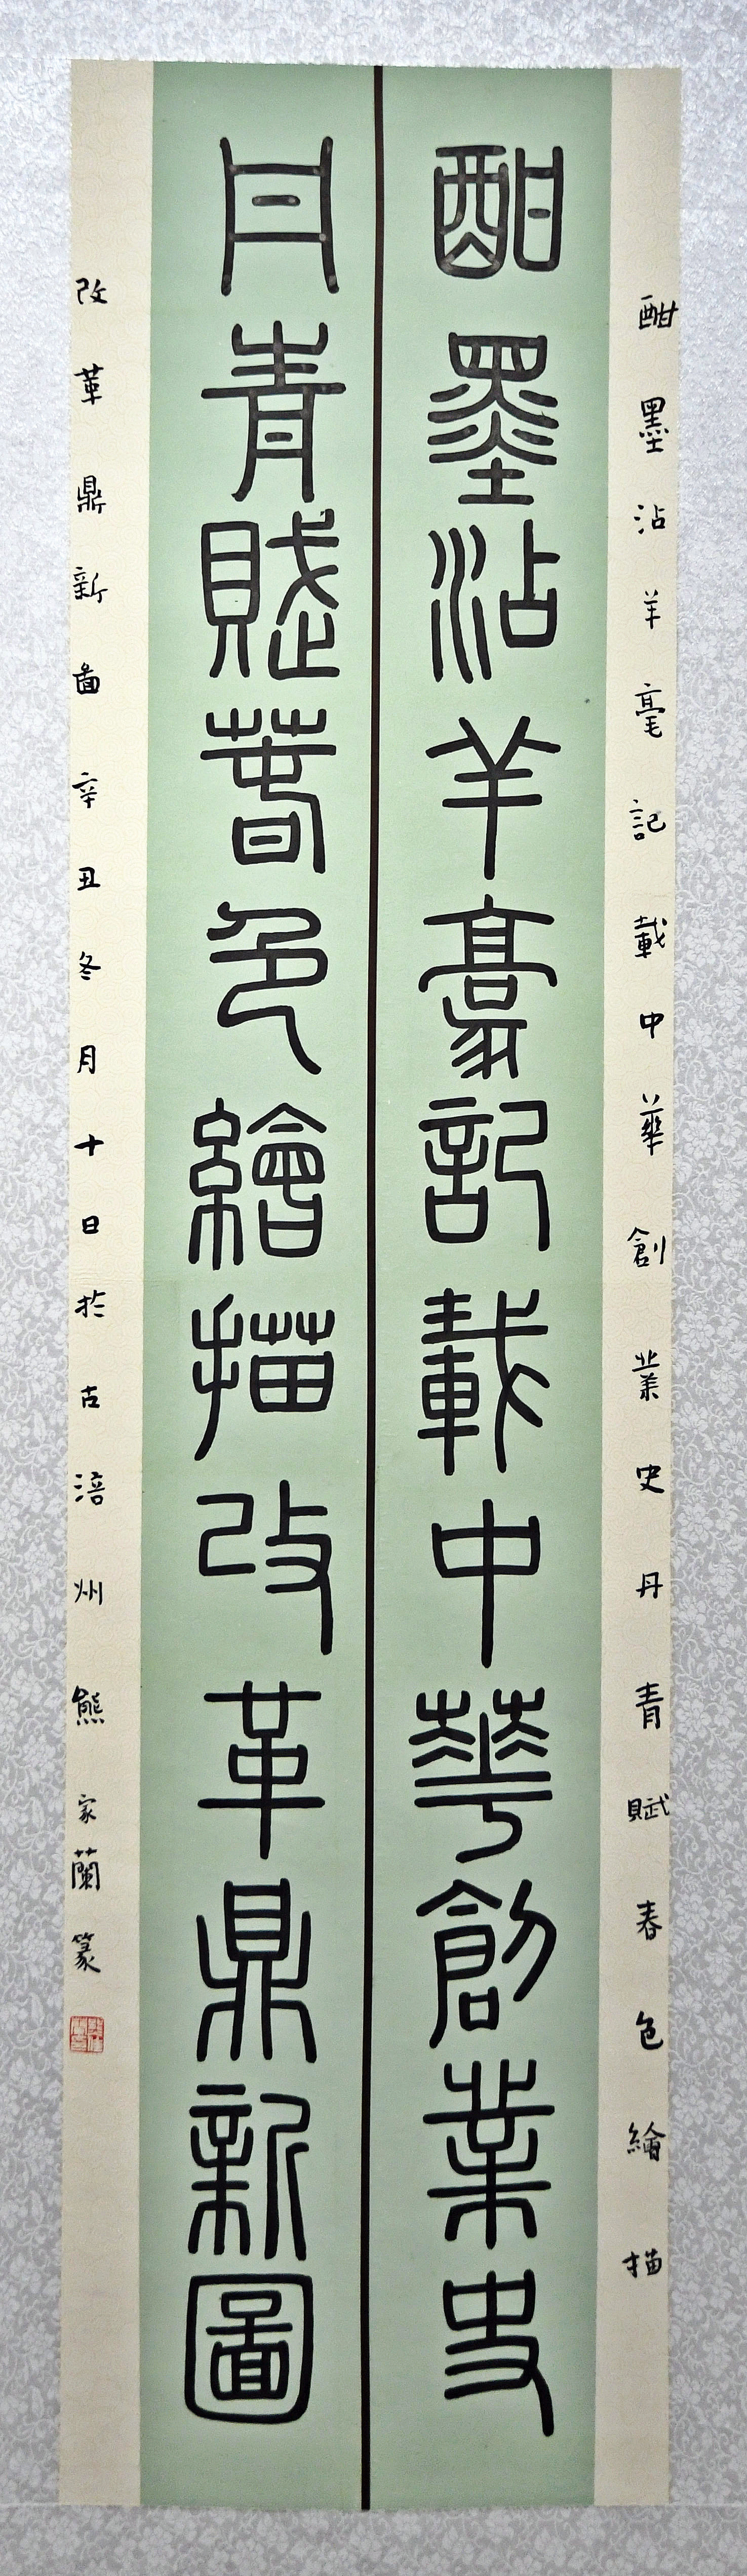 酣墨沾羊毫記載中華創業史丹青賦春色繪描
酣墨沾羊豪記載中華創業史
丹青賦春色繪描改革鼎新圖
改革鼎新啚辛丑冬月十日於古涪州熊家蘭篆